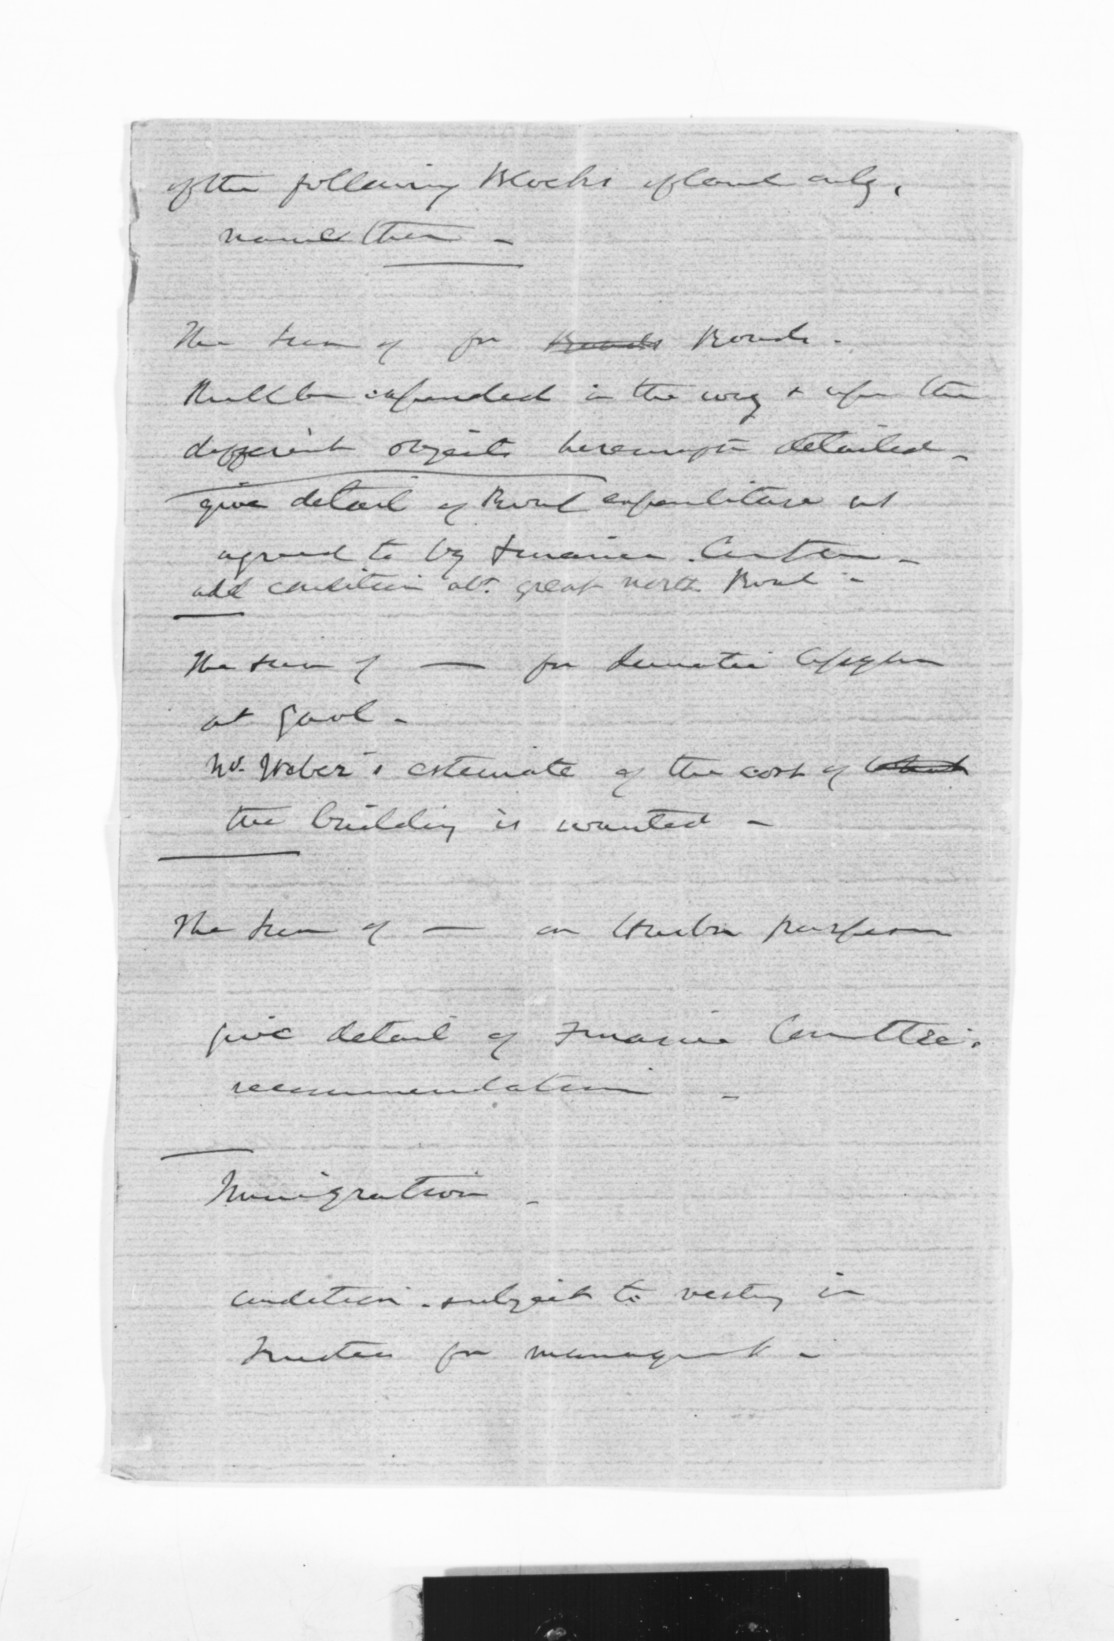 of the following Blocks of land only.
name them -
The sum of for ~~Roads~~ Roads.
shall be expended in the way & upon the
different objects hereunto detailed -
give detail of Road expenditure as
agreed to by Finance Comtee -
add condition abt. great north Road -
The sum of — for Lunatic Asylum
at Gaol -
Mr. Weber's estimate of the cost of
the building is wanted -
The sum of — on Harbor purposes
give detail of Finance Committee.
recommendation -
Immigration -
condition - subject to vesting in
Trustees for managemt -